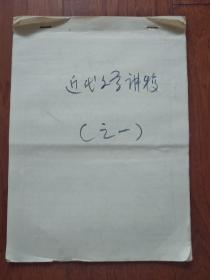 近代文学讲稿
(之一)